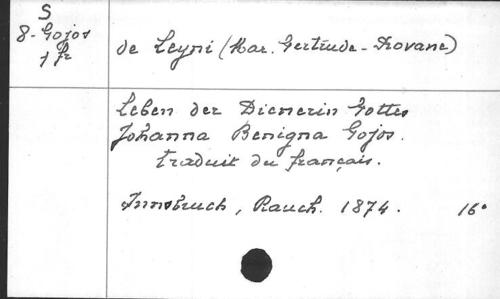 S
8-Gojos
1 fr
de Leyni (Mar. Gertrude-Provane)
Leben der Dienerin Gottes
Johanna Benigna Gojos.
traduit du français.
Innsbruch, Rauch. 1874. 16°